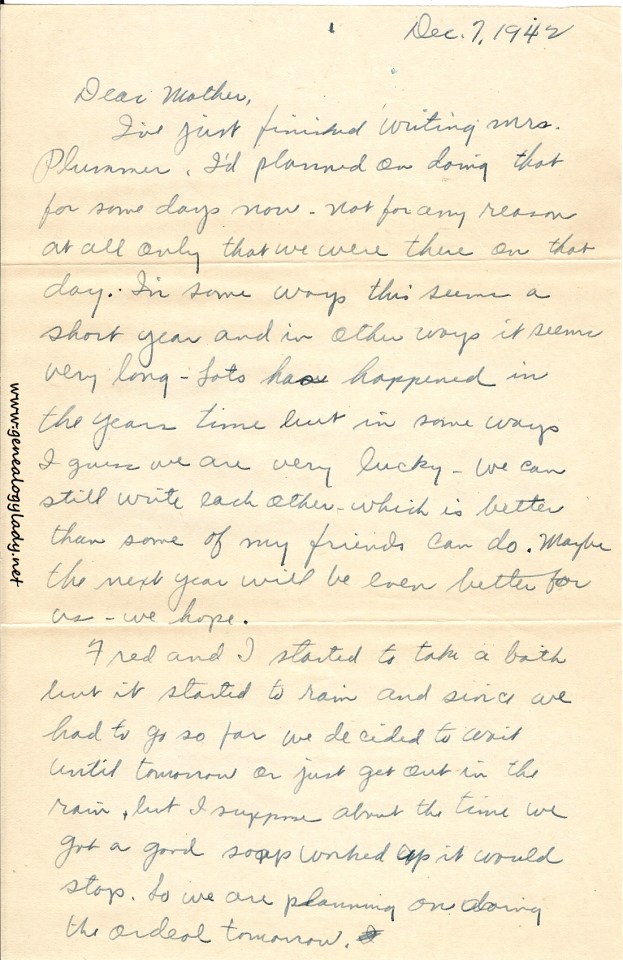 Dec. 7, 1942
Dear Mother,
I've just finished writing Mrs.
Plummer. I'd planned on doing that
for some days now - not for any reason
at all only that we were there on that
day. In some ways this seems a
short year and in other ways it seems
very long - Lots has happened in
the years time but in some ways
I guess we are very lucky - we can
still write each other - which is better
than some of my friends can do. Maybe
the next year will be even better for
us - we hope.
Fred and I started to take a bath
but it started to rain and since we
had to go so far we decided to wait
until tomorrow or just get out in the
rain, but I suppose about the time we
got a good soap worked up it would
stop. So we are planning on doing
the ordeal tomorrow.
www.genealogylady.net